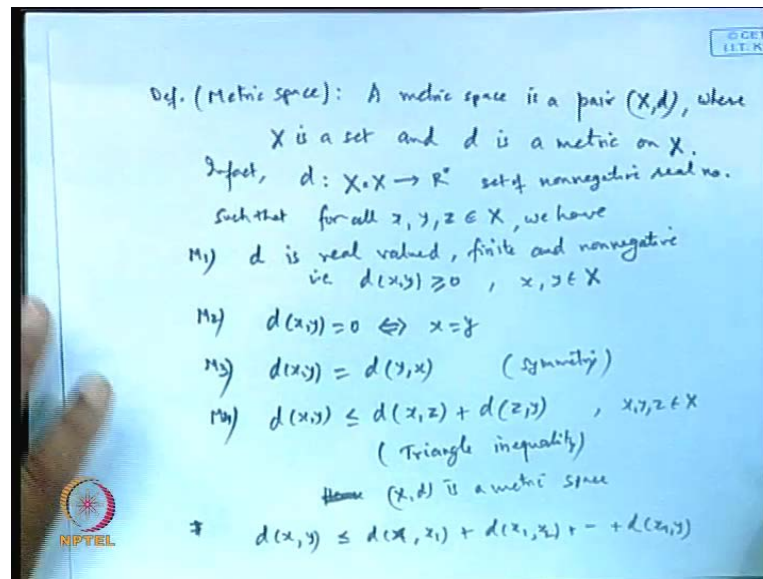 © CET
I.I.T. K
Def. (Metric space): A metric space is a pair (X,d), where
X is a set and d is a metric on X.
Infact, d: X×X → R* set of nonnegative real no.
such that for all x, y, z ∈ X, we have
M1) d is real valued, finite and nonnegative
i.e. d(x,y) ≥ 0 , x, y ∈ X
M2) d(x,y) = 0 ⇔ x = y
M3) d(x,y) = d(y,x) (Symmetry)
M4) d(x,y) ≤ d(x,z) + d(z,y) , x,y,z ∈ X
(Triangle inequality)
(X,d) is a metric space
d(x,y) ≤ d(x,x1) + d(x1,x2) + - + d(xn,y)
NPTEL